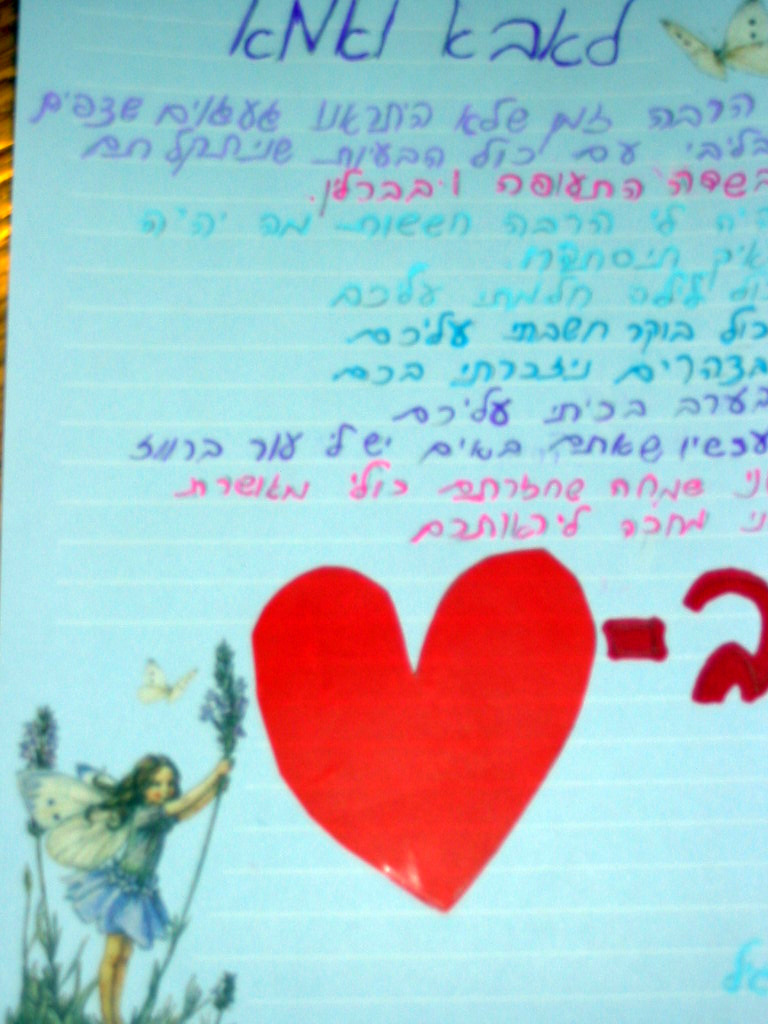 לאבא ואמא
הרבה זמן שלא היתראנו געגועים שצפים
בליבי עם כול הבעיות שניתקלתם
בשדה התעופה ובברלין.
היה לי הרבה חששות מה יהיה
איך תיסתדרו
כול לילה חלמתי עליכם
כול בוקר חשבתי עליכם
בצהריים ניזכרתי בכם
בערב בכיתי עליכם
עכשיו שאתם באים יש לי עור ברווז
אני שמחה שחזרתם כולי מאושרת
אני מחכה ליראותכם
ב-